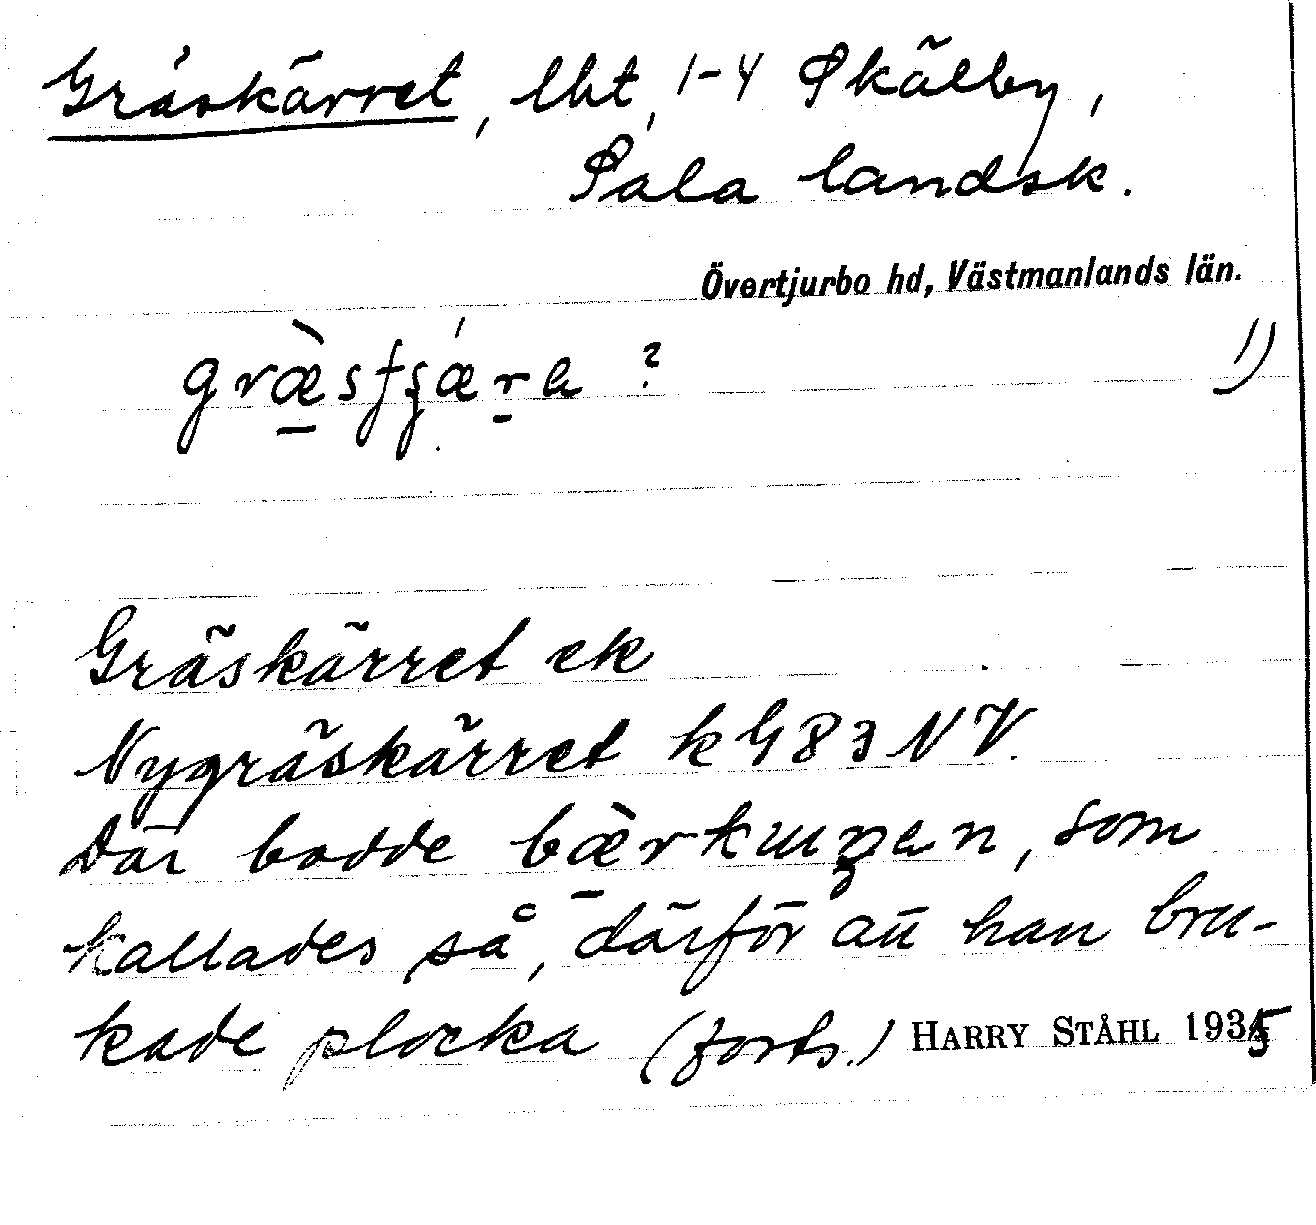 Gräskärret, lht, 1-4 Skälby,
Sala landsk.
Övertjurbo hd, Västmanlands län.
1)
Gräskärret ek
Nygräskärret k G83 NV.
Där bodde bærkuŋen, som
kallades så, därför att han bru-
kade plocka (forts.) HARRY STÅHL 1935